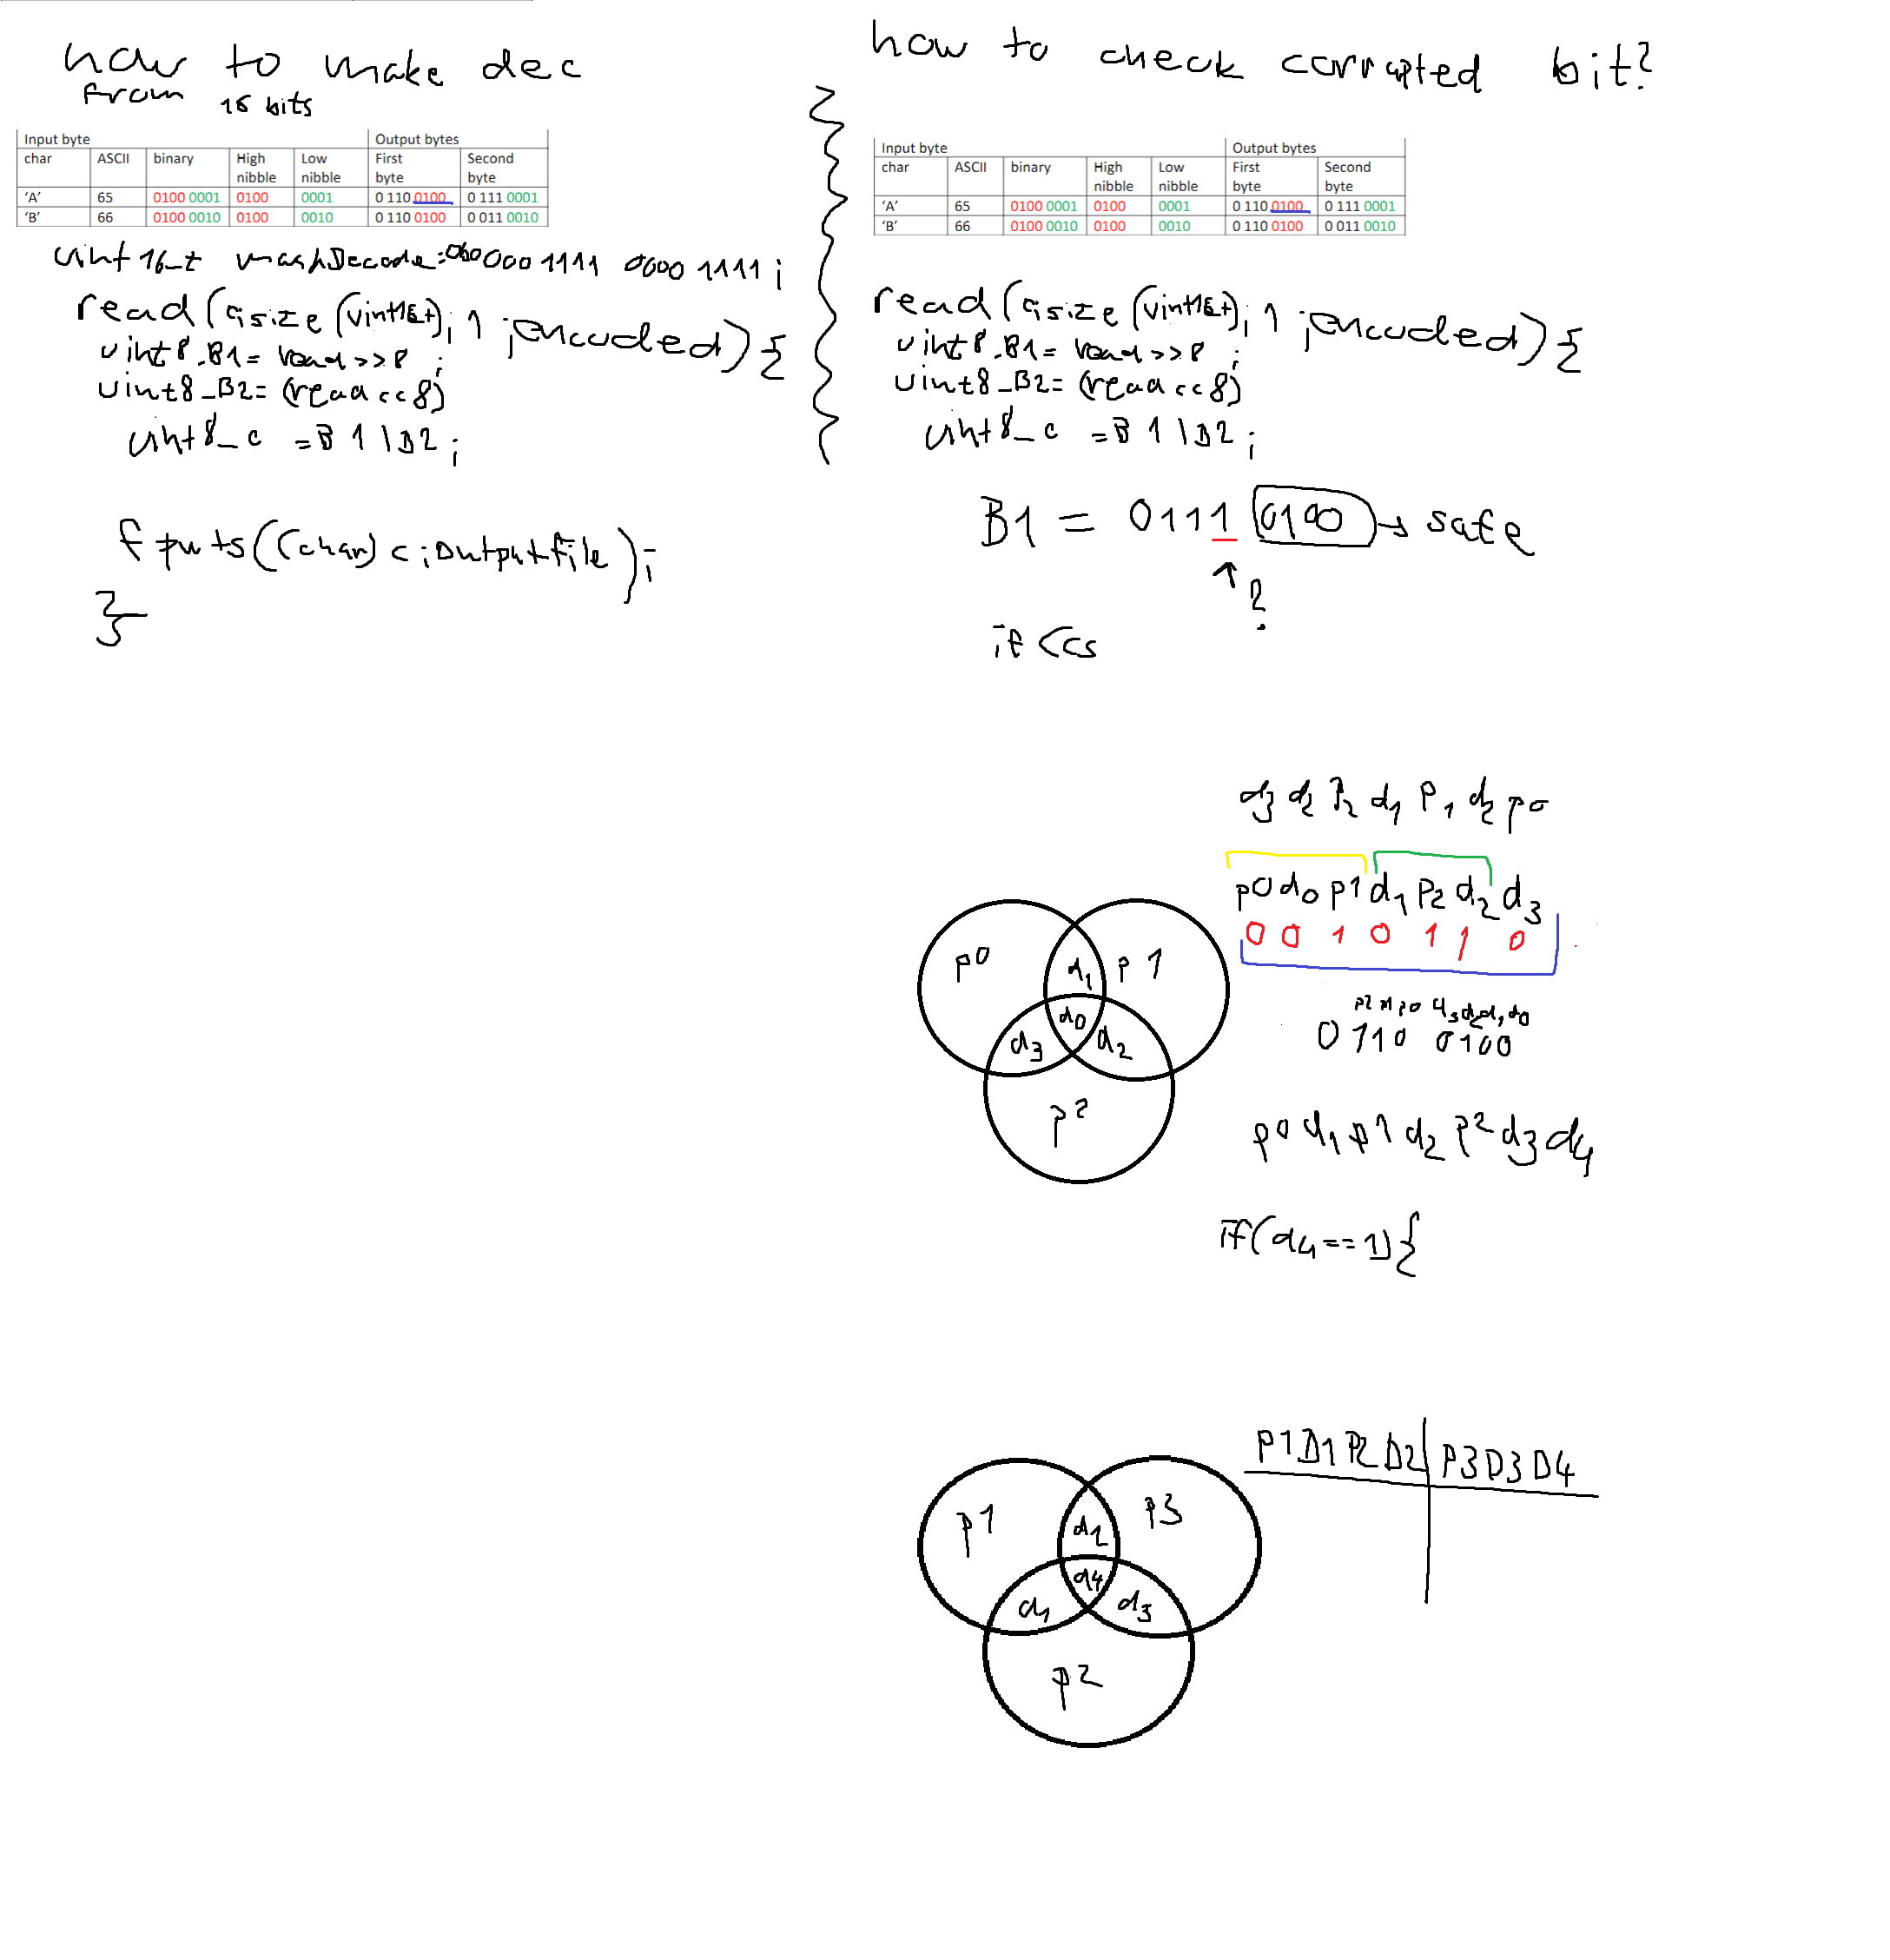 how to make dec
from 16 bits
Input byte Output bytes
char ASCII binary High nibble Low nibble First byte Second byte
'A' 65 0100 0001 0100 0001 0 110 0100 0 111 0001
'B' 66 0100 0010 0100 0010 0 110 0100 0 011 0010
uint16_t maskDecode=0b0000 1111 0000 1111;
read( size(uint16t); 1 ;encoded){
uint8_B1= read>>8;
uint8_B2= (read<<8)
uint8_c = B1|B2;
fputs((char)c;outputfile);
}
how to check corrupted bit?
Input byte Output bytes
char ASCII binary High nibble Low nibble First byte Second byte
'A' 65 0100 0001 0100 0001 0 110 0100 0 111 0001
'B' 66 0100 0010 0100 0010 0 110 0100 0 011 0010
read( size(uint16t); 1 ;encoded){
uint8_B1= read>>8;
uint8_B2= (read<<8)
uint8_c = B1|B2;
B1 = 0111 0100 → safe
↑ ?
if
d3 d2 P2 d1 P1 d2 p0
p0 d0 p1 d1 P2 d2 d3
0 0 1 0 1 1 0
p0 d1 p1
d0
d3 d2
p2
p2 p1 p0 d3 d2 d1 d0
0 110 0100
p0 d1 p1 d2 p2 d3 d4
if(d4==1){
P1 D1 P2 D2 P3 D3 D4
p1 d2 p3
d4
d1 d3
p2